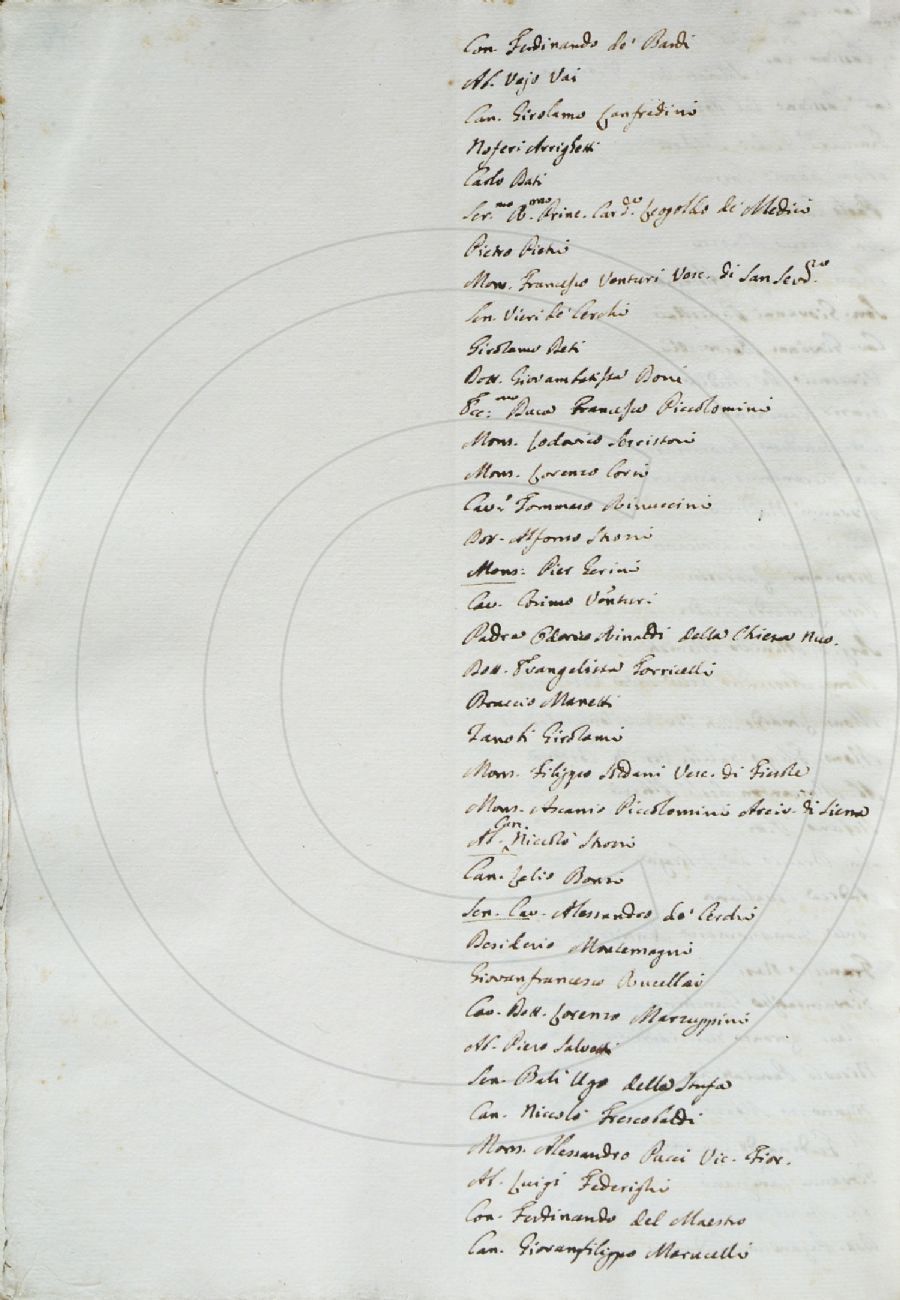 Con. Ferdinando de' Bardi
Ab. Vajo Vai
Can. Girolamo Lanfredini
Noferi Arrighetti
Carlo Dati
Ser.mo R.mo Princ. Card.le Leopoldo de' Medici
Pietro Pieri
Mons. Francesco Venturi Vesc. di San Sev.ro
Sen. Vieri de' Cerchi
Girolamo Deti
Dott. Giovambatista Doni
Ecc:mo Duca Francesco Piccolomini
Mons. Lodovico Serristori
Mons. Lorenzo Corsi
Cav.r Tommaso Rinuccini
Bar. Alfonso Strozzi
Mons: Pier Gerini
Cav. Cosimo Venturi
Padre Odorico Rinaldi della Chiesa Nuo.
Dott. Evangelista Torricelli
Braccio Manetti
Zanobi Girolami
Mons. Filippo Soldani Vesc. di Fiesole
Mons. Ascanio Piccolomini Arciv. di Siena
Ab. Can. Niccolò Strozzi
Can. Lelio Bonsi
Sen. Cav. Alessandro de' Cerchi
Desiderio Montemagni
Giovanfrancesco Rucellai
Cav. Dott. Lorenzo Marzuppini
Ab. Piero Salvetti
Sen. Balì Ugo della Stufa
Can. Niccolò Frescobaldi
Mons. Alessandro Pucci Vic. Fior.
Ab. Luigi Federighi
Con. Ferdinando del Maestro
Can. Giovanfilippo Marucelli